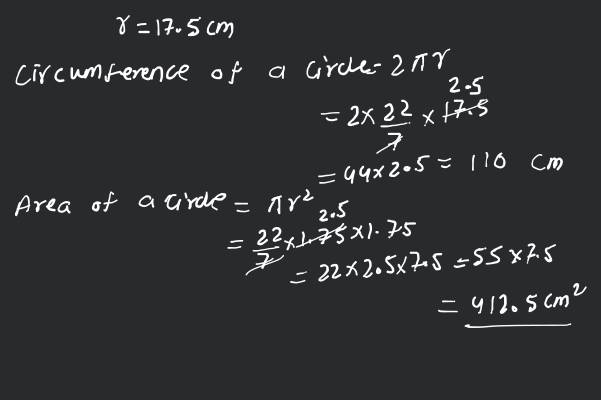 r = 17.5 cm
Circumference of a circle = 2πr
2.5
= 2 × 22/7 × 17.5
= 44 × 2.5 = 110 cm
Area of a circle = πr²
2.5
= 22/7 × 1.75 × 1.75
= 22 × 2.5 × 7.5 = 55 × 7.5
= 412.5 cm²